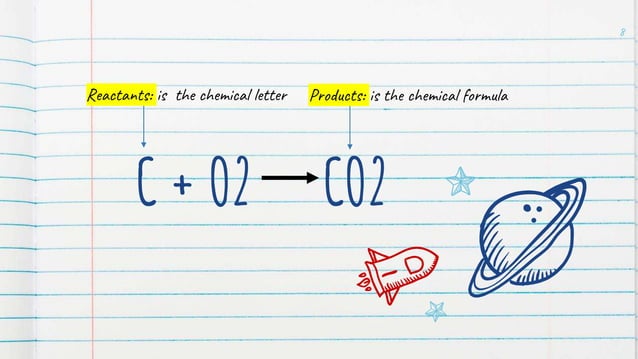 8
Reactants: is the chemical letter Products: is the chemical formula
C + O2 CO2